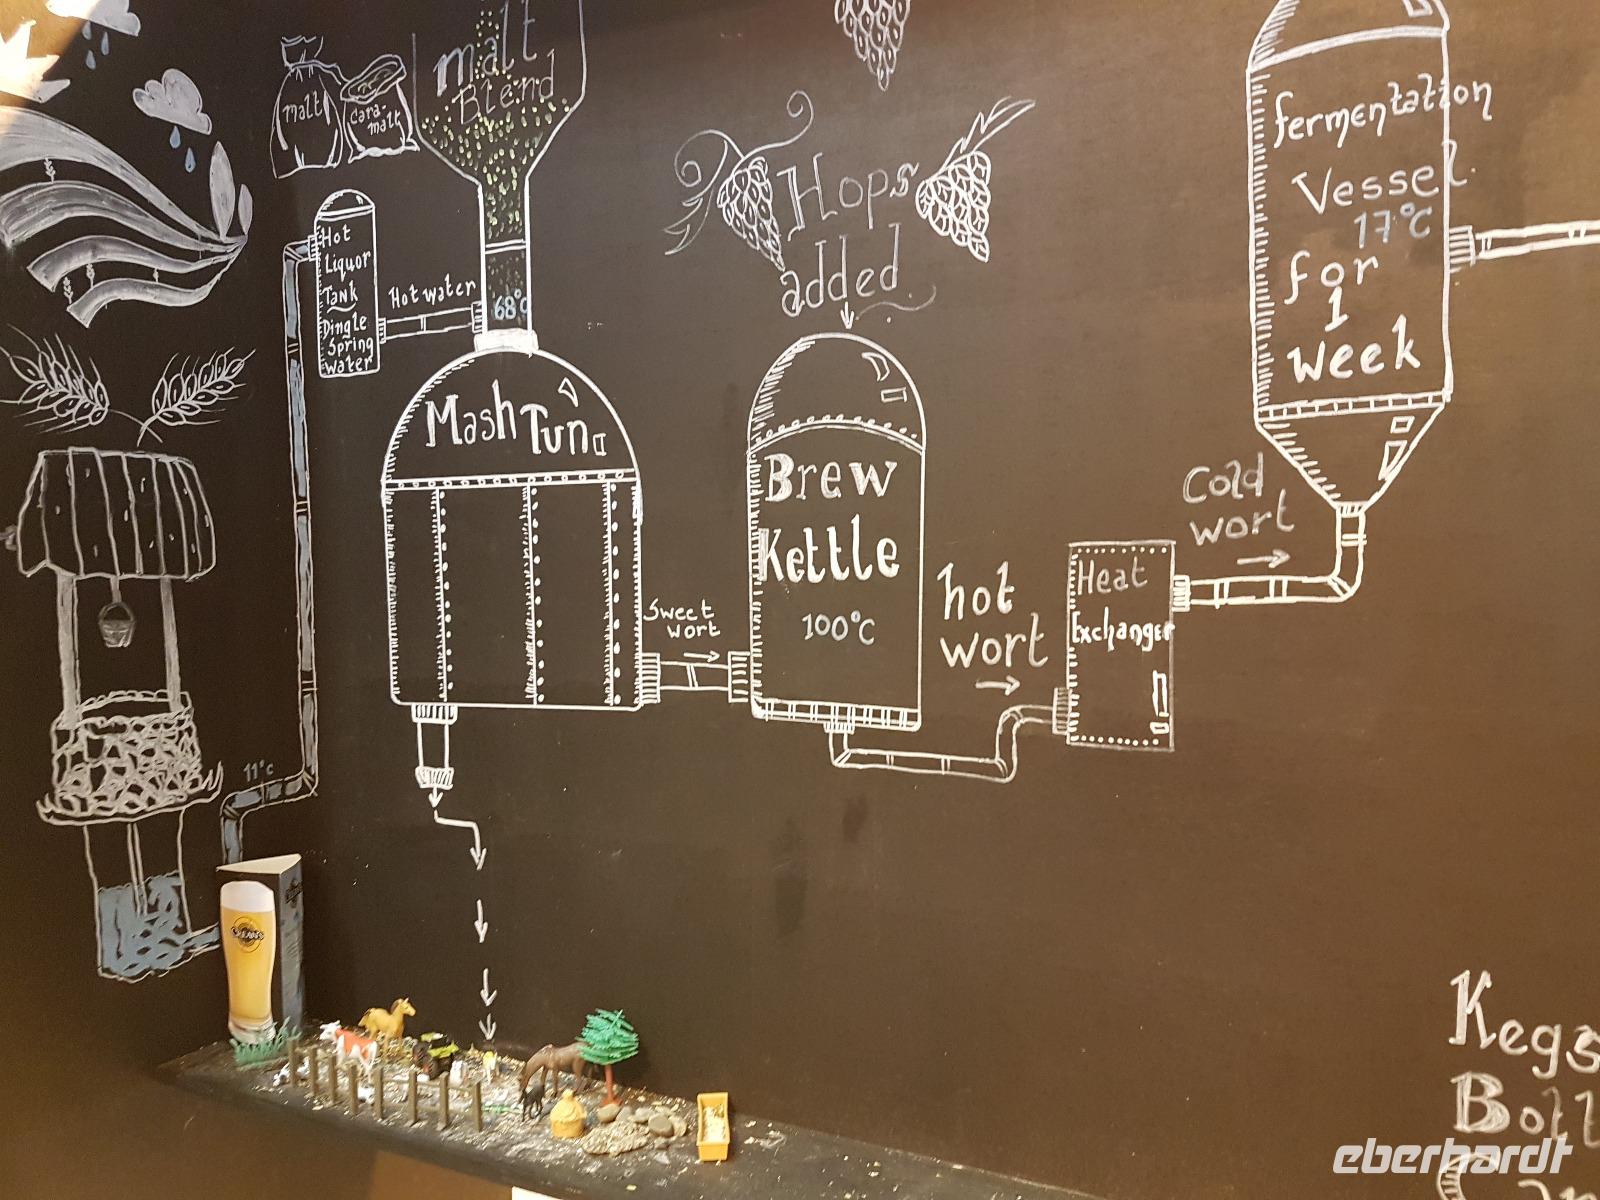 malt
Blend
malt
Cara-
malt
Hot
Liquor
Tank
Dingle
Spring
Water
Hot water
68°C
Hops
added
fermentation
Vessel
17°C
for
1
Week
Mash Tun
Brew
Kettle
100°C
Sweet
wort
hot
wort
Heat
Exchanger
Cold
wort
11°c
Kegs
eberhardt